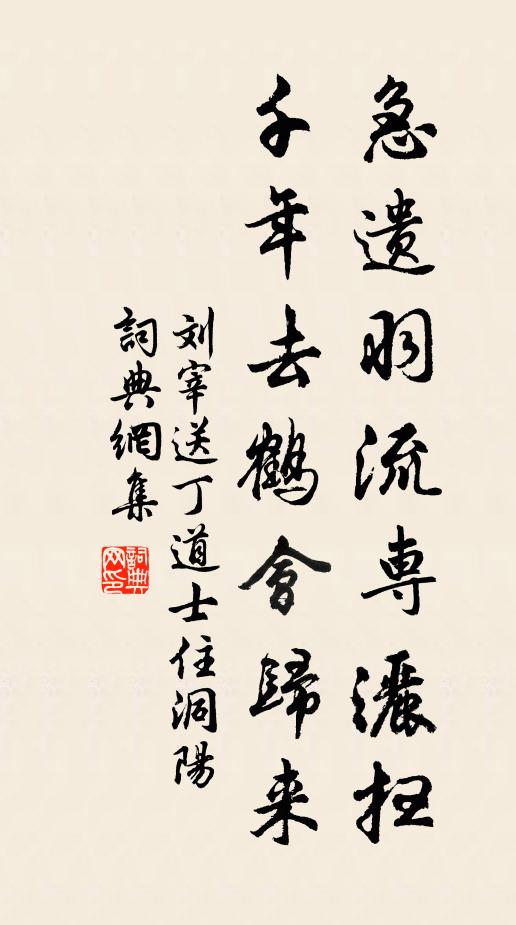 急遗羽流専灑扫
千年去鶴會歸来
刘宰送丁道士住洞陽
詞典網集
詞典网印